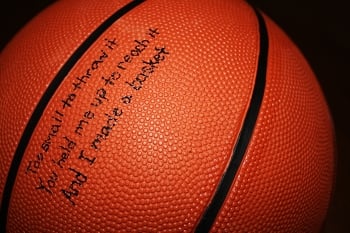 Too small to throw it
You held me up to reach it
And I made a basket